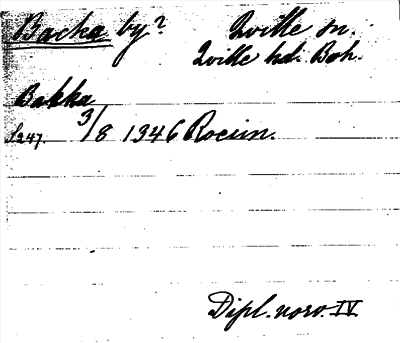 Backa by? Qville sn.
Qville hd. Boh.
Bakka
S247. 3/8 1346 Rocun.
Dipl. norv. IV.